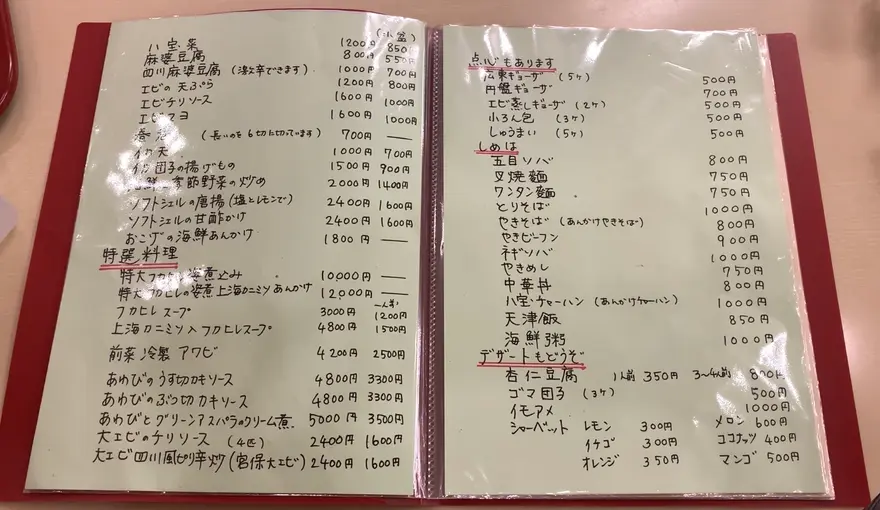 (小盆)
八宝菜 1200円 850円
麻婆豆腐 800円 550円
四川麻婆豆腐 (激辛できます) 1000円 700円
エビの天ぷら 1200円 800円
エビチリソース 1600円 1000円
エビマヨ 1600円 1000円
春巻 (長いのを6切に切っています) 700円 ―
イカ天 1000円 700円
イカ団子の揚げもの 1500円 900円
海鮮と季節野菜の炒め 2000円 1400円
ソフトシェルの唐揚 (塩とレモンで) 2400円 1600円
ソフトシェルの甘酢かけ 2400円 1600円
おこげの海鮮あんかけ 1800円 ―
特選料理
特大フカヒレ姿煮込み 10,000円 ―
特大フカヒレの姿煮上海カニミソあんかけ 12,000円 ―
一人前
フカヒレスープ 3000円 1200円
上海カニミソ入フカヒレスープ 4800円 1500円
前菜冷製アワビ 4200円 2500円
あわびのうす切カキソース 4800円 3300円
あわびのぶつ切カキソース 4800円 3300円
あわびとグリーンアスパラのクリーム煮 5000円 3500円
大エビのチリソース (4匹) 2400円 1600円
大エビ四川風ピリ辛炒 (宮保大エビ) 2400円 1600円
点心もあります
広東ギョーザ (5ヶ) 500円
円盤ギョーザ 700円
エビ蒸しギョーザ (2ヶ) 500円
小ろん包 (3ヶ) 500円
しゅうまい (5ヶ) 500円
しめは
五目ソバ 800円
叉焼麺 750円
ワンタン麺 750円
とりそば 1000円
やきそば (あんかけやきそば) 800円
やきビーフン 900円
ネギソバ 1000円
やきめし 750円
中華丼 800円
八宝チャーハン (あんかけチャーハン) 1000円
天津飯 850円
海鮮粥 1000円
デザートもどうぞ
杏仁豆腐 1人前 350円 3〜4人前 800円
ゴマ団子 (3ヶ) 500円
イモアメ 1000円
シャーベット レモン 300円 メロン 600円
イチゴ 300円 ココナッツ 400円
オレンジ 350円 マンゴ 500円